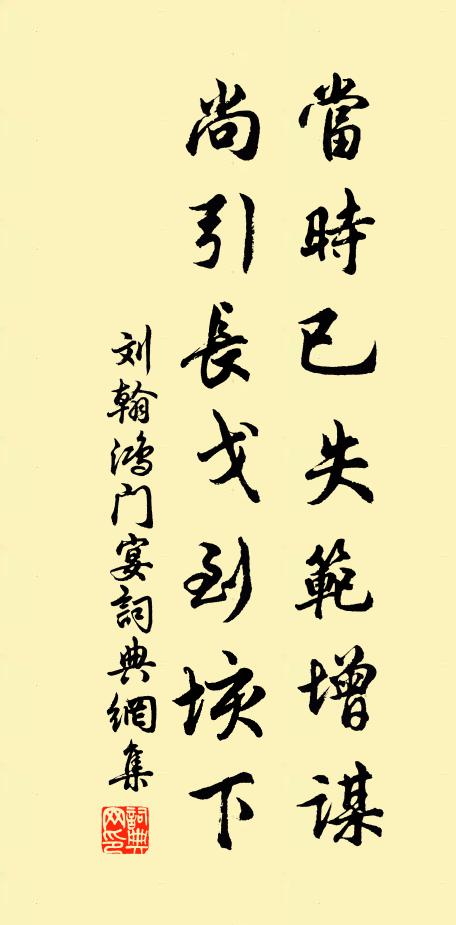 當時已失範增謀
尚引長戈到垓下
刘翰鸿门宴詞典網集
詞典网印